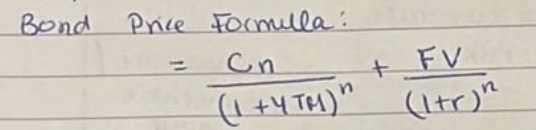 Bond Price Formulla:
= Cn / (1+YTM)^n + FV / (1+r)^n